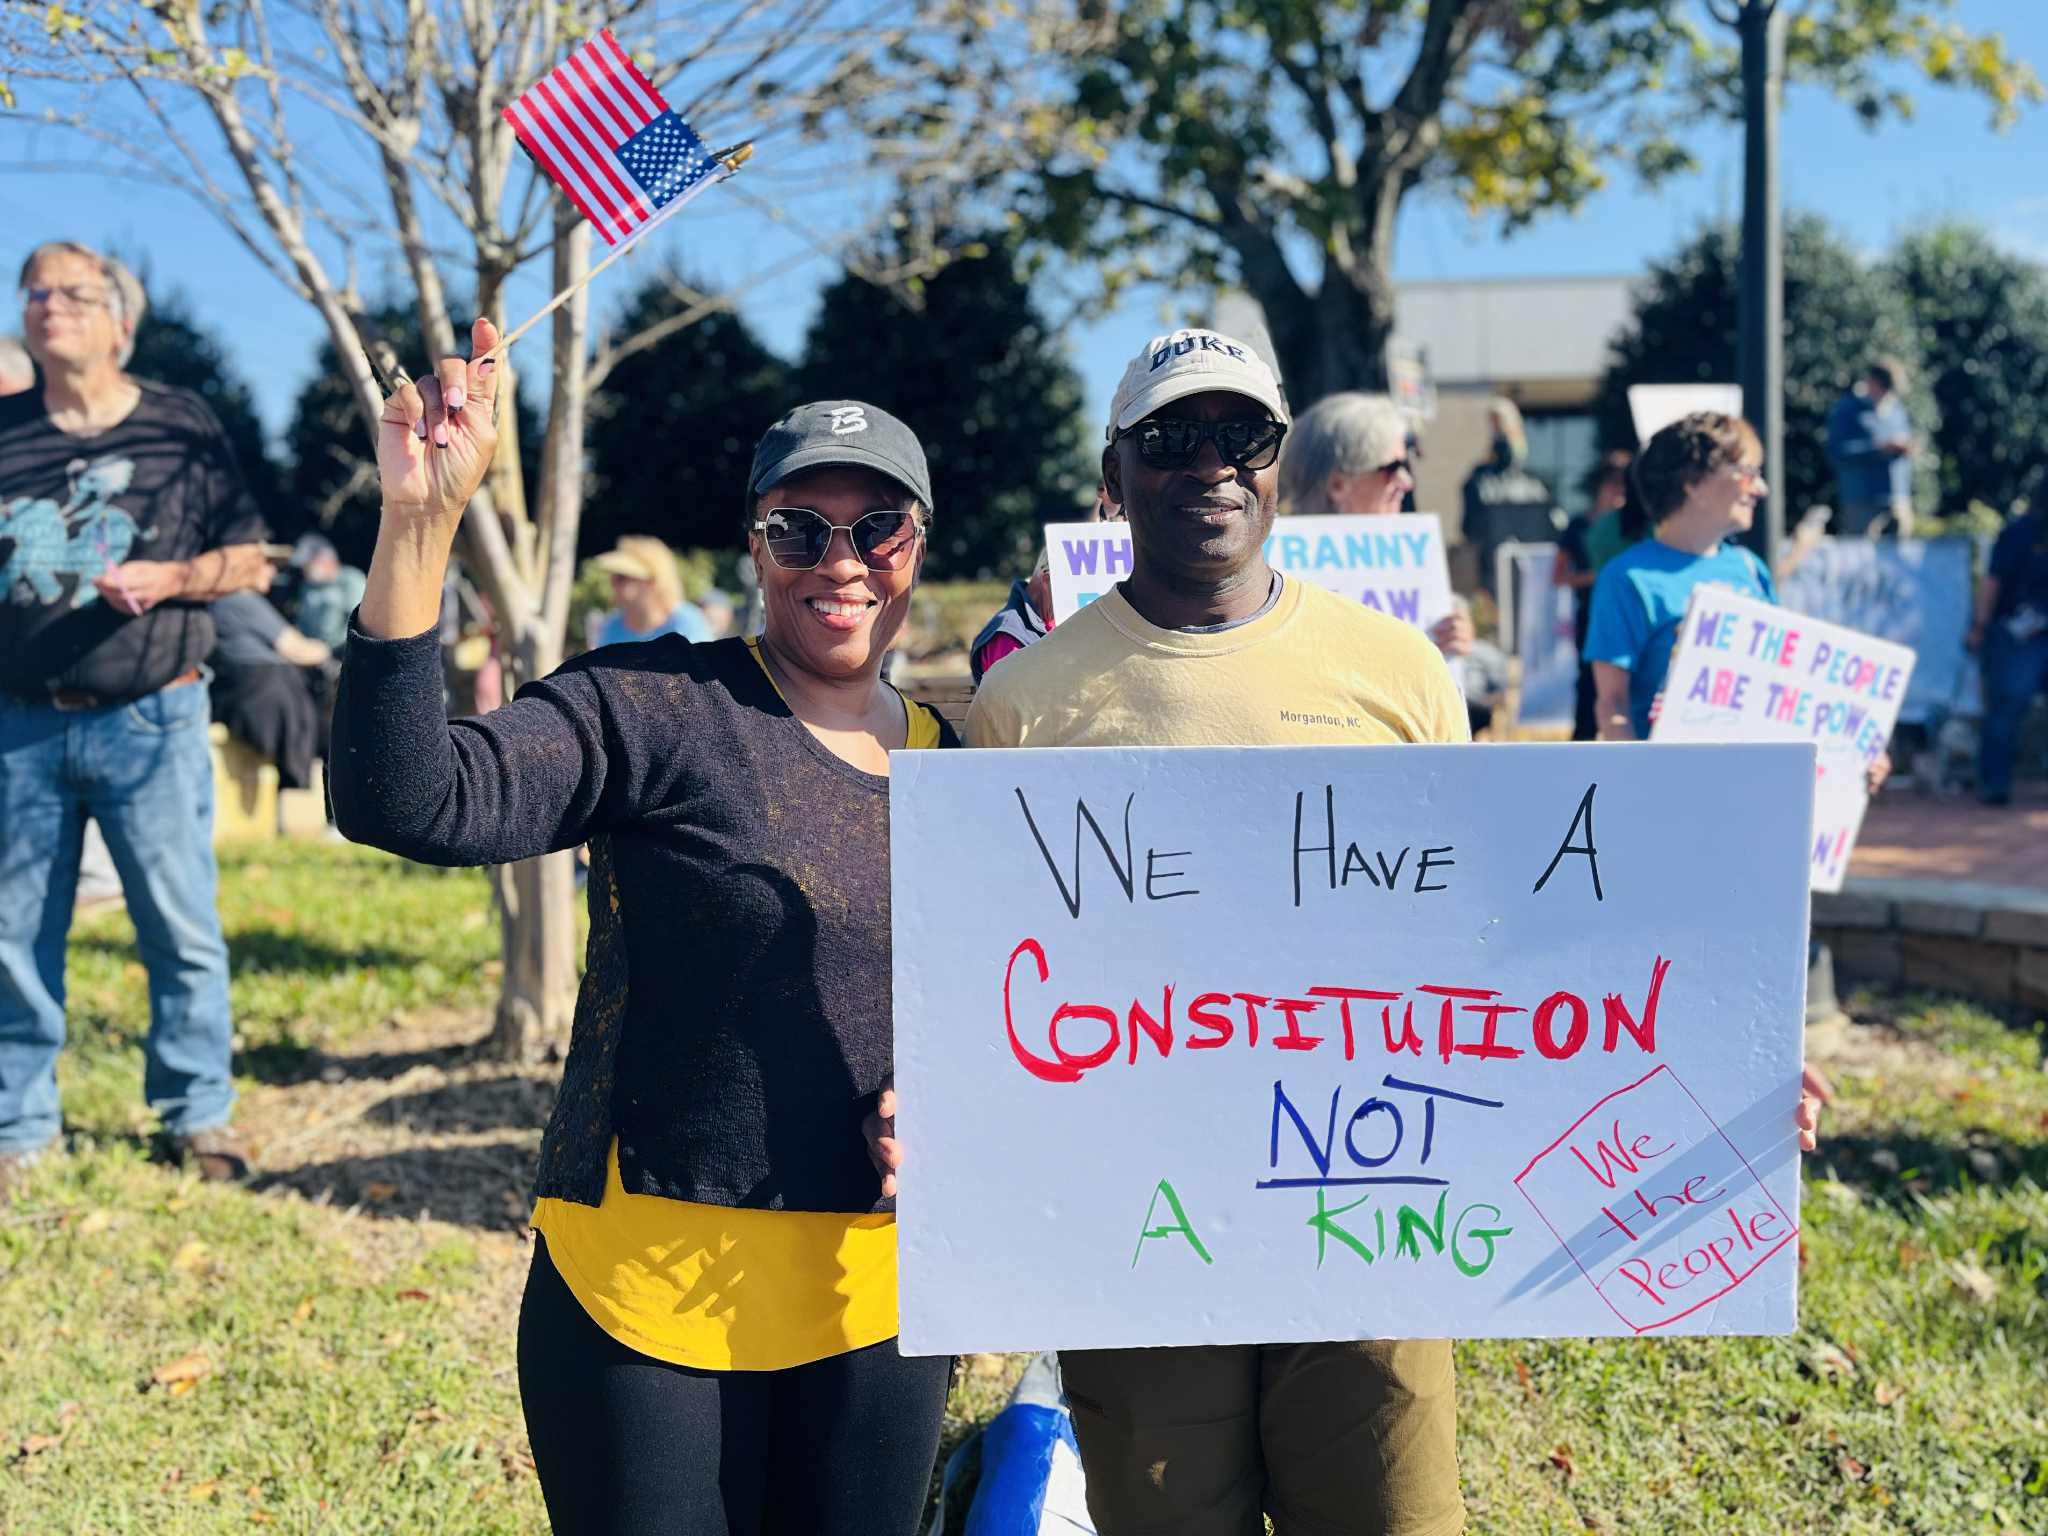 DUKE
B
WH
YRANNY
LAW
Morganton, NC
WE THE PEOPLE
ARE THE POWER
N!
WE HAVE A
CONSTITUTION
NOT
A KING
We
the
People